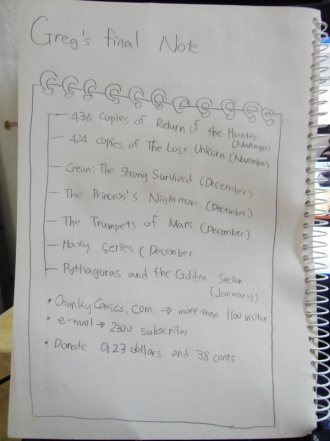 Greg's final Note
- 436 copies of Return of the Hunter (November)
- 424 copies of The Lost Unicorn (November)
- Creon: The Strong Survived (December)
- The Princess's Nightmare (December)
- The Trumpets of Mars (December)
- Maxy Series (December
- Pythagoras and the Golden Section (January)
• ChunkyComics.com → more than 1100 visitor
• e-mail → 2300 subscriber
• Donate dollars and 38 cents